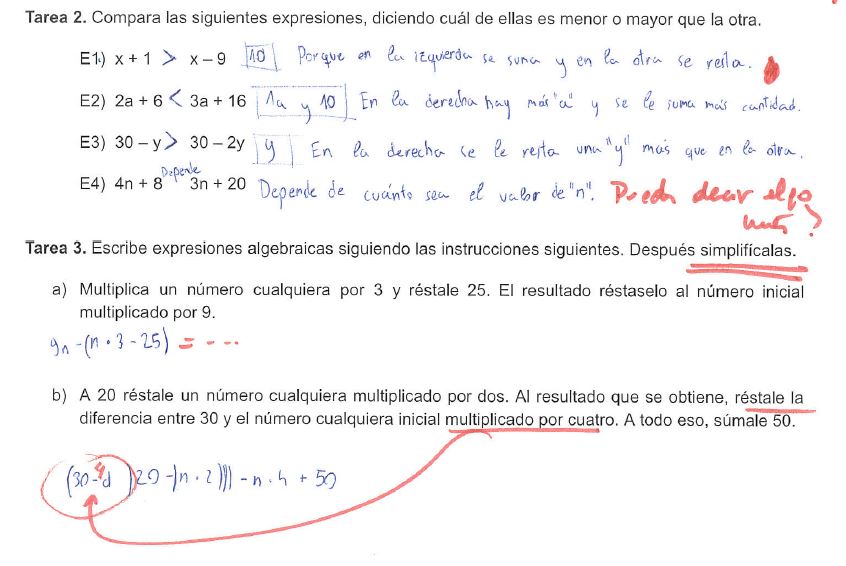 Tarea 2. Compara las siguientes expresiones, diciendo cuál de ellas es menor o mayor que la otra.
E1) x + 1 > x – 9 10 Porque en la izquierda se suma y en la otra se resta.
E2) 2a + 6 < 3a + 16 1a y 10 En la derecha hay más "a" y se le suma más cantidad.
E3) 30 – y > 30 – 2y y En la derecha se le resta una "y" más que en la otra.
E4) 4n + 8 Depende 3n + 20 Depende de cuánto sea el valor de "n". Puedes decir algo
más?
Tarea 3. Escribe expresiones algebraicas siguiendo las instrucciones siguientes. Después simplifícalas.
a) Multiplica un número cualquiera por 3 y réstale 25. El resultado réstaselo al número inicial
multiplicado por 9.
9n -(n · 3 - 25) = ----
b) A 20 réstale un número cualquiera multiplicado por dos. Al resultado que se obtiene, réstale la
diferencia entre 30 y el número cualquiera inicial multiplicado por cuatro. A todo eso, súmale 50.
(30-4d )20 -(n · 2))) - n · 4 + 50